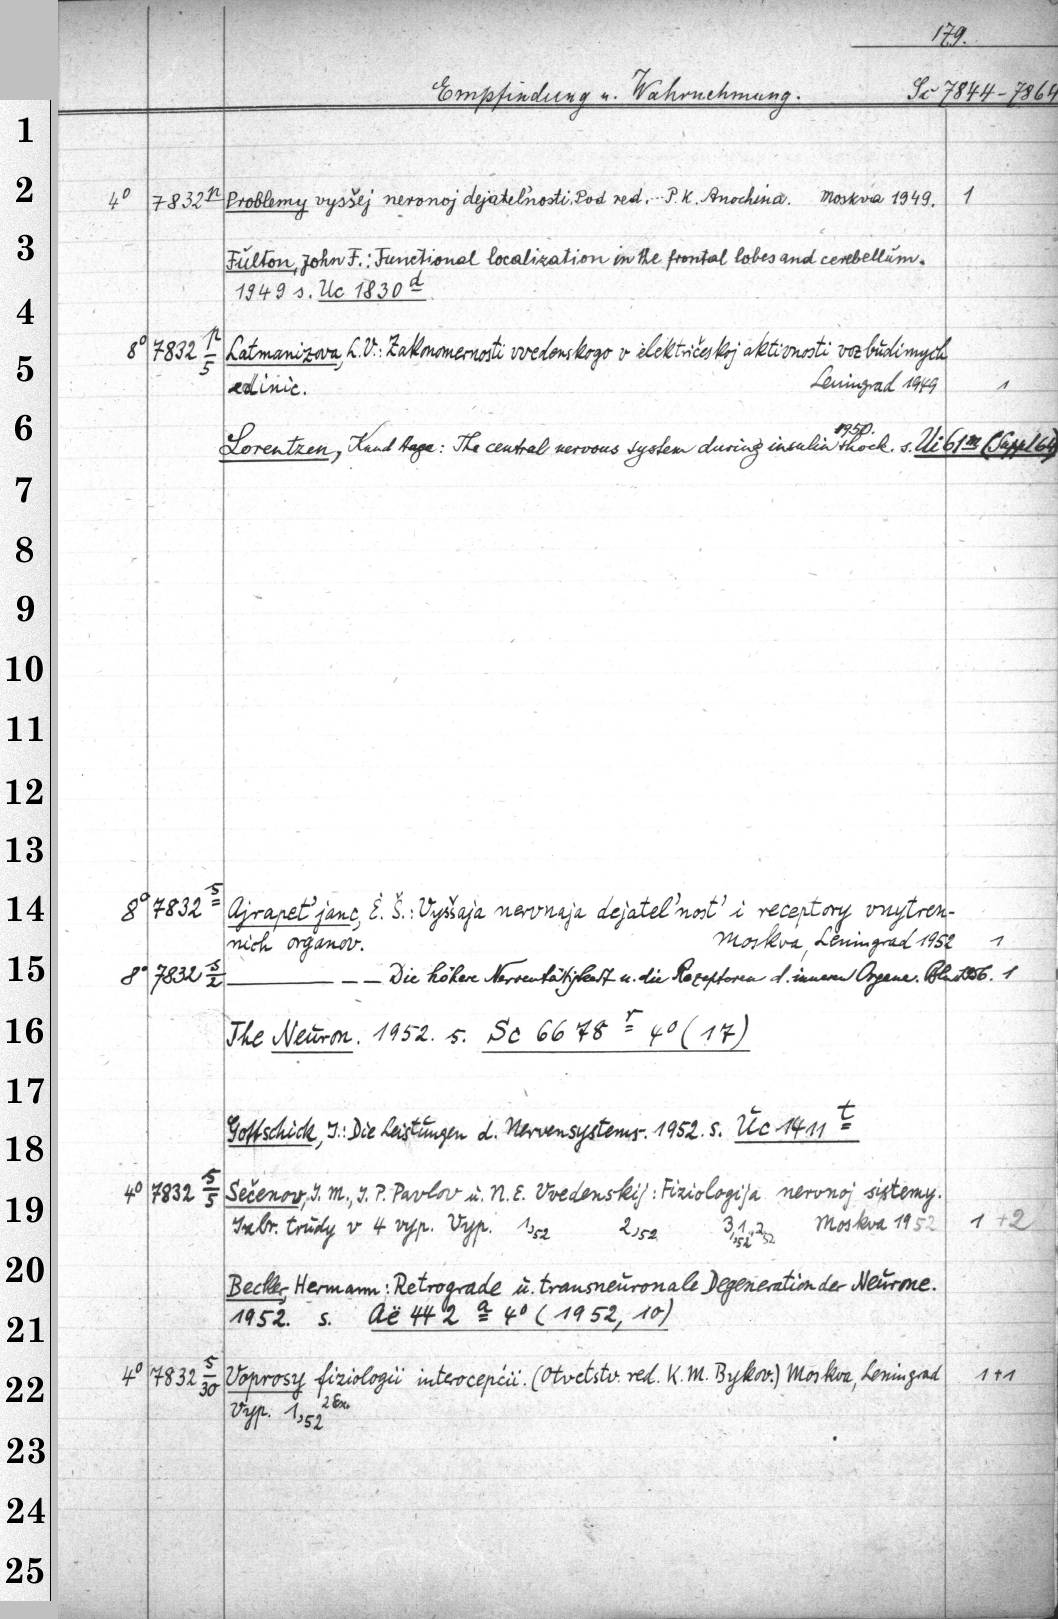 179.
Empfindung u. Wahrnehmung. Sc 7844-7864
4° 7832 p Problemy vysšej nervnoj dejatel'nosti. Pod red. P. K. Anochina. Moskva 1949. 1
Fulton, John F.: Functional localization in the frontal lobes and cerebellum.
1949 s. Uc 1830 d
8° 7832 p/5 Latmanizova, L.V.: Zakonomernosti vvedenskogo v električeskoj aktivnosti vozbudimych
edinic. Leningrad 1949 1
1950.
Lorentzen, Knud Aage: The central nervous system during insulin shock. s. Ui 61 m (Suppl 64)
8° 7832 s Ajrapet'janc, Ė. Š.: Vyššaja nervnaja dejatel'nost' i receptory vnytren-
nich organov. Moskva, Leningrad 1952 1
8° 7832 s/2 — — — Die höhere Nerventätigkeit u. die Rezeptoren d. inneren Organe. Bln 1956. 1
The Neuron. 1952. s. Sc 6678 r 4° (17)
Gottschick, J.: Die Leistungen d. Nervensystems. 1952. s. Uc 1411 t
4° 7832 s/5 Sečenov, I. M., I. P. Pavlov u. N. E. Vvedenskij: Fiziologija nervnoj sistemy.
Izbr. trudy v 4 vyp. Vyp. 1,52 2,52 3,1,52.2,52 Moskva 1952 1 +2
Becker, Hermann: Retrograde u. transneuronale Degeneration der Neurone.
1952. s. Aë 442 a 4° (1952, 10)
4° 7832 s/30 Voprosy fiziologii interocepcii. (Otvetstv. red. K. M. Bykov.) Moskva, Leningrad 1+1
Vyp. 1,52 2 Ex.
1
2
3
4
5
6
7
8
9
10
11
12
13
14
15
16
17
18
19
20
21
22
23
24
25